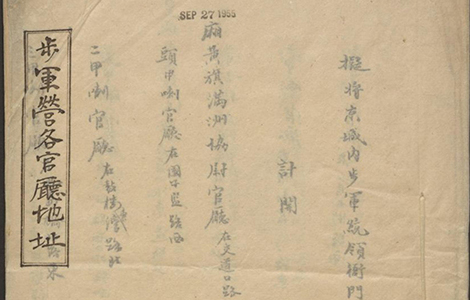 SEP 27 1955
擬將京城內步軍統領衙門
計開
廂黃旗滿洲協尉官廳 在交道口路
頭甲喇官廳 在國子監路西
二甲喇官廳 在鼓樓後路北
步軍營各官廳地址